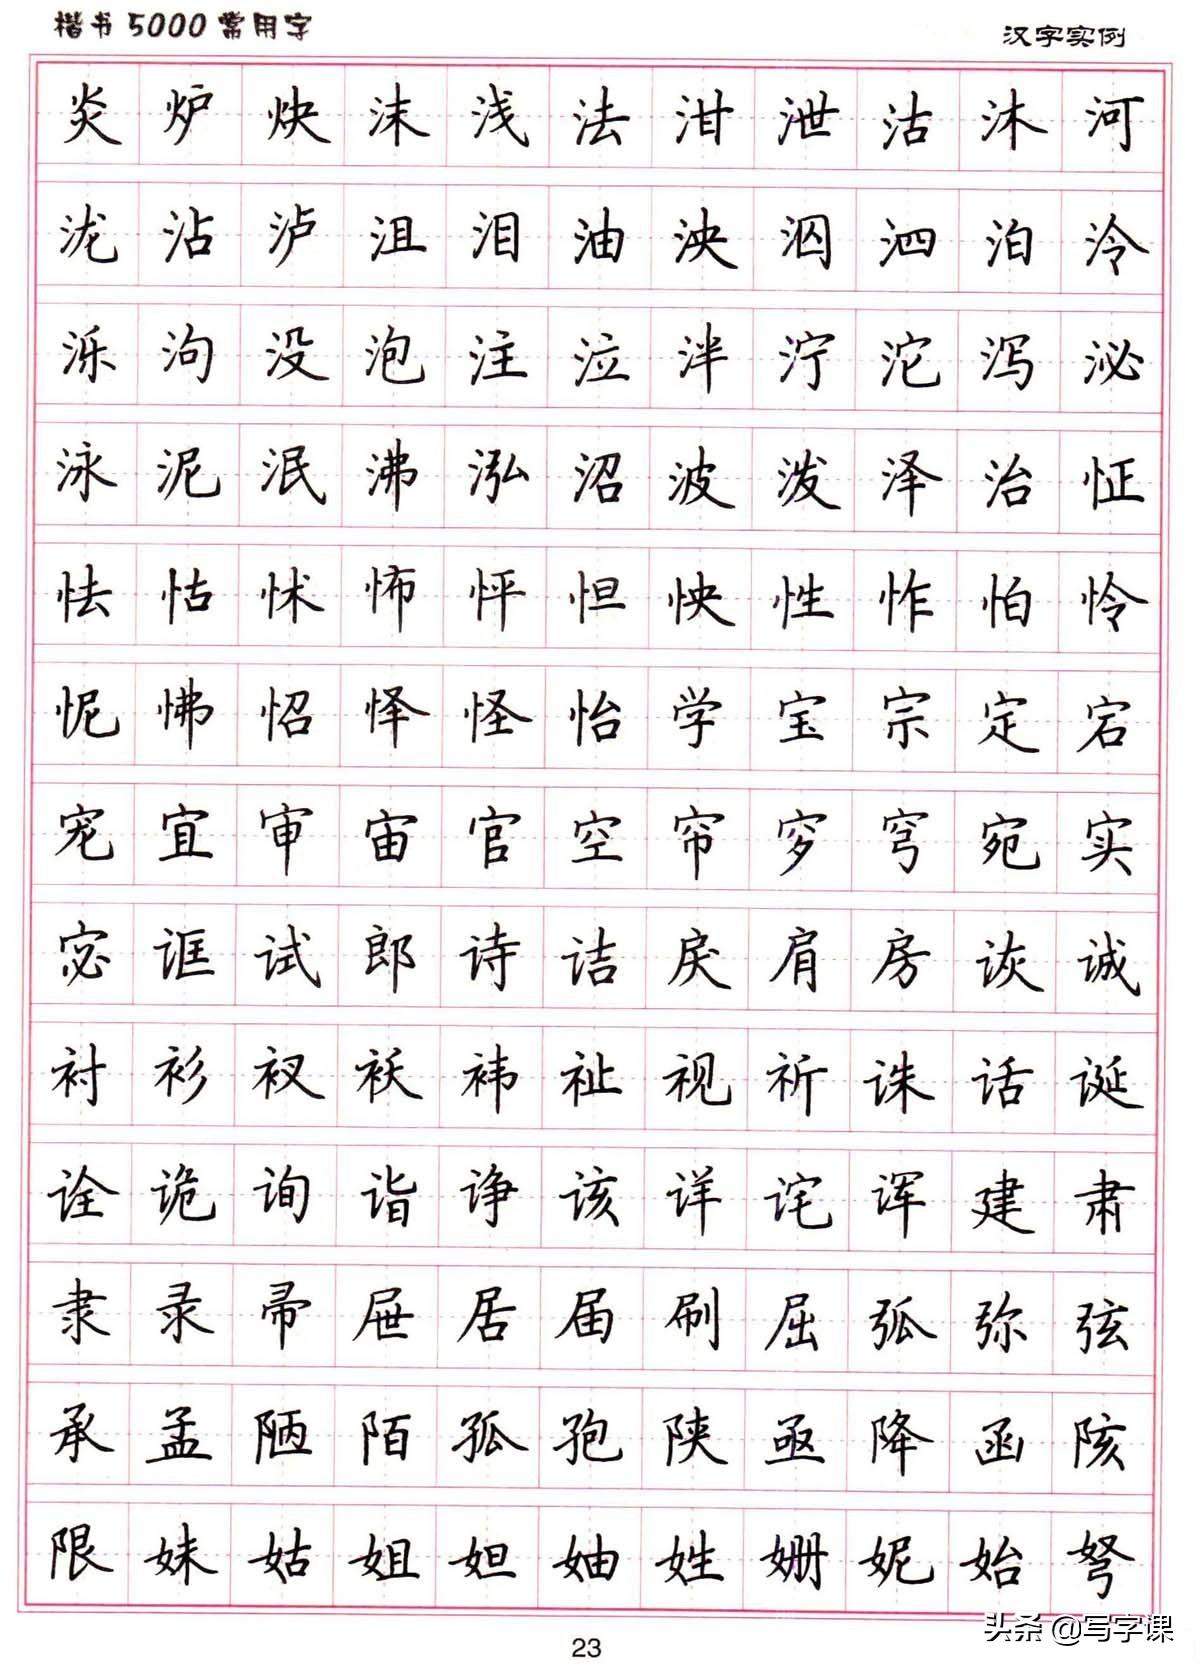 楷书5000常用字
汉字实例
炎炉炔沫浅法泔泄沽沐河
泷沾泸沮泪油泱泅泗泊泠
泺泃没泡注泣泮泞沱泻泌
泳泥泯沸泓沼波泼泽治怔
怯怙怵怖怦怛怏性怍怕怜
怩怫怊怿怪怡学宝宗定宕
宠宜审宙官空帘穸穹宛实
宓诓试郎诗诘戾肩房诙诚
衬衫衩袄祎祉视祈诛话诞
诠诡询诣诤该详诧诨建肃
隶录帚屉居届刷屈弧弥弦
承孟陋陌孤孢陕亟降函陔
限妹姑姐妲妯姓姗妮始弩
23
头条 @写字课